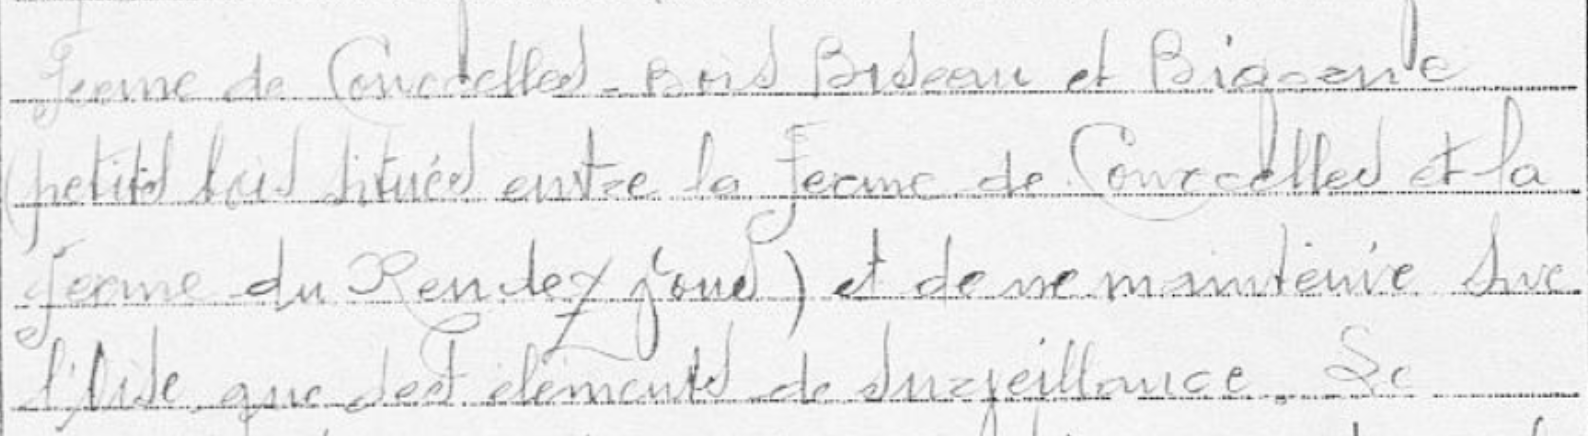 ferme de Courcelles - Bois Buseau et
(petits bois situés entre la ferme de Courcelles et la
ferme du Rendez vous) et de ne maintenir sur
l'Aisne que des éléments de surveillance. Le